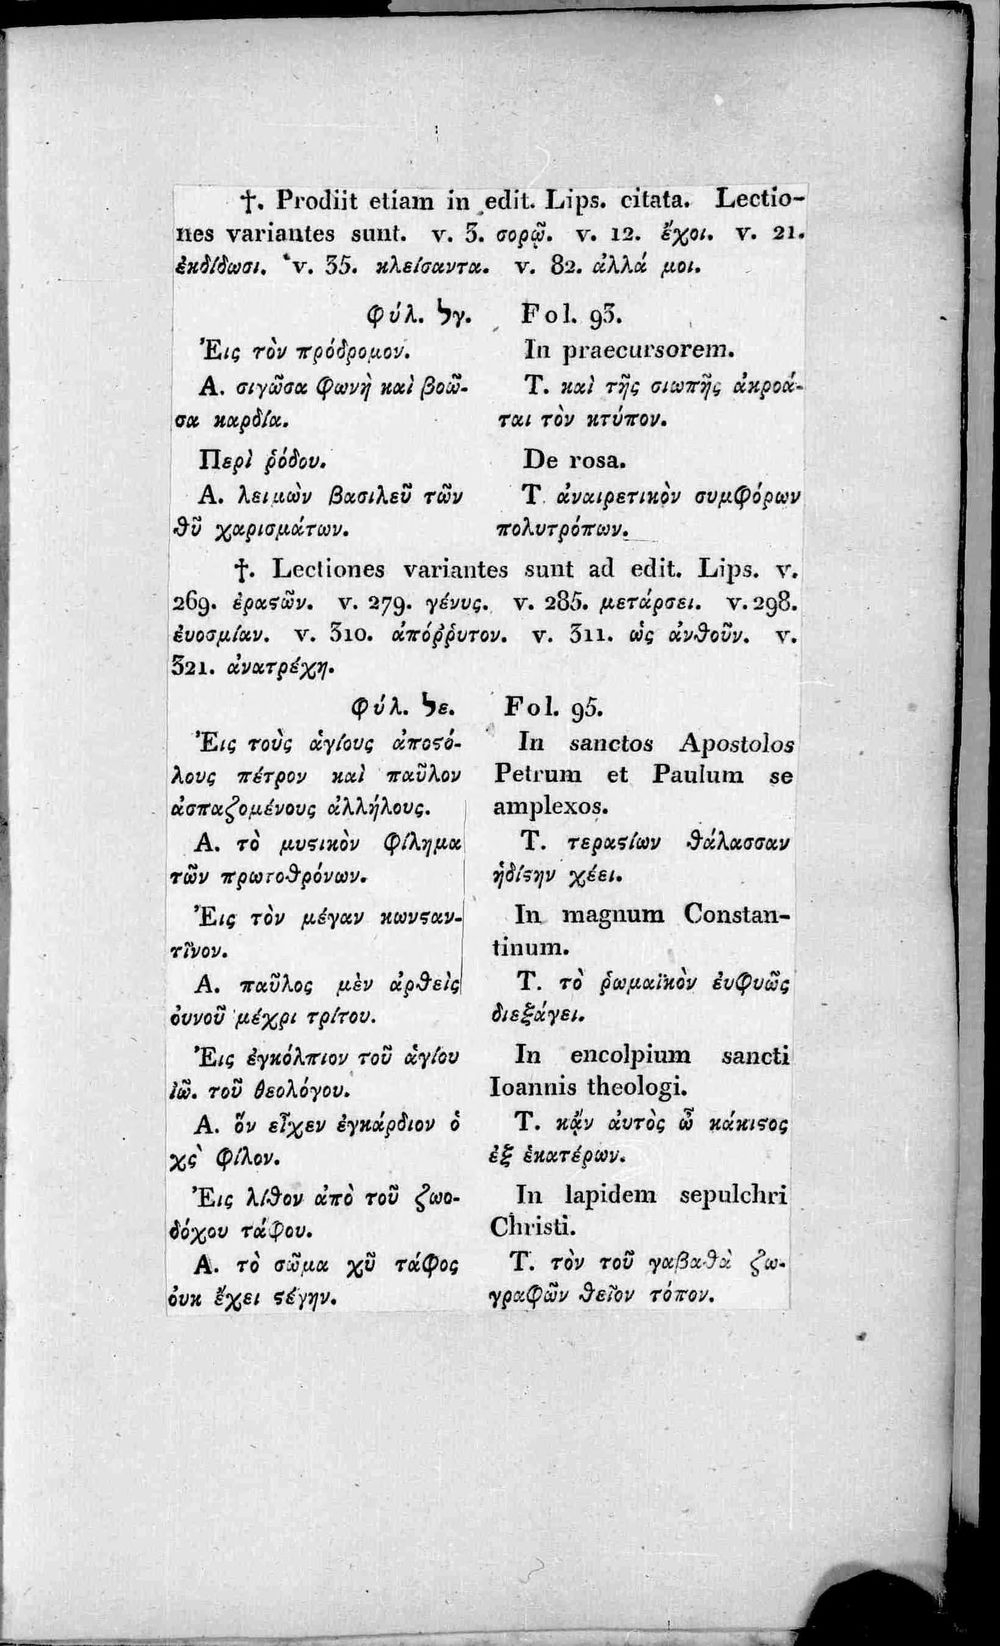 †. Prodiit etiam in edit. Lips. citata. Lectio-
nes variantes sunt. v. 3. σορῷ. v. 12. ἔχοι. v. 21.
ἐκδίδωσι. v. 35. κλείσαντα. v. 82. ἀλλά μοι.
φύλ. ϟγ. Fol. 93.
Ἐις τὸν πρόδρομον. In praecursorem.
Α. σιγῶσα φωνὴ καὶ βοῶ- Τ. καὶ τῆς σιωπῆς ἀκροά-
σα καρδία. ται τὸν κτύπον.
Περὶ ῥόδου. De rosa.
Α. λειμὼν βασιλεῦ τῶν Τ. ἀναιρετικὸν συμφόρων
θῦ χαρισμάτων. πολυτρόπων.
†. Lectiones variantes sunt ad edit. Lips. v.
269. ἐραϛῶν. v. 279. γένυς. v. 285. μετάρσει. v. 298.
ἐυοσμίαν. v. 310. ἀπόῤῥυτον. v. 311. ὡς ἀνθοῦν. v.
321. ἀνατρέχῃ.
φύλ. ϟε. Fol. 95.
Ἐις τοὺς ἁγίους ἀποϛό- In sanctos Apostolos
λους πέτρον καὶ παῦλον Petrum et Paulum se
ἀσπαζομένους ἀλλήλους. amplexos.
Α. τὸ μυϛικὸν φίλημα Τ. τεραϛίων θάλασσαν
τῶν πρωτοθρόνων. ἡδίϛην χέει.
Ἐις τὸν μέγαν κωνϛαν- In magnum Constan-
τῖνον. tinum.
Α. παῦλος μὲν ἀρθεὶς Τ. τὸ ῥωμαϊκὸν ἐυφυῶς
ὀυνοῦ μέχρι τρίτου. διεξάγει.
Ἐις ἐγκόλπιον τοῦ ἁγίου In encolpium sancti
ἰῶ. τοῦ θεολόγου. Ioannis theologi.
Α. ὅν εἶχεν ἐγκάρδιον ὁ Τ. κᾄν ἀυτὸς ὦ κάκιϛος
χς φίλον. ἐξ ἑκατέρων.
Ἐις λίθον ἀπὸ τοῦ ζωο- In lapidem sepulchri
δόχου τάφου. Christi.
Α. τὸ σῶμα χῦ τάφος Τ. τὸν τοῦ γαβαθὰ ζω-
ὀυκ ἔχει ϛέγην. γραφῶν θεῖον τόπον.